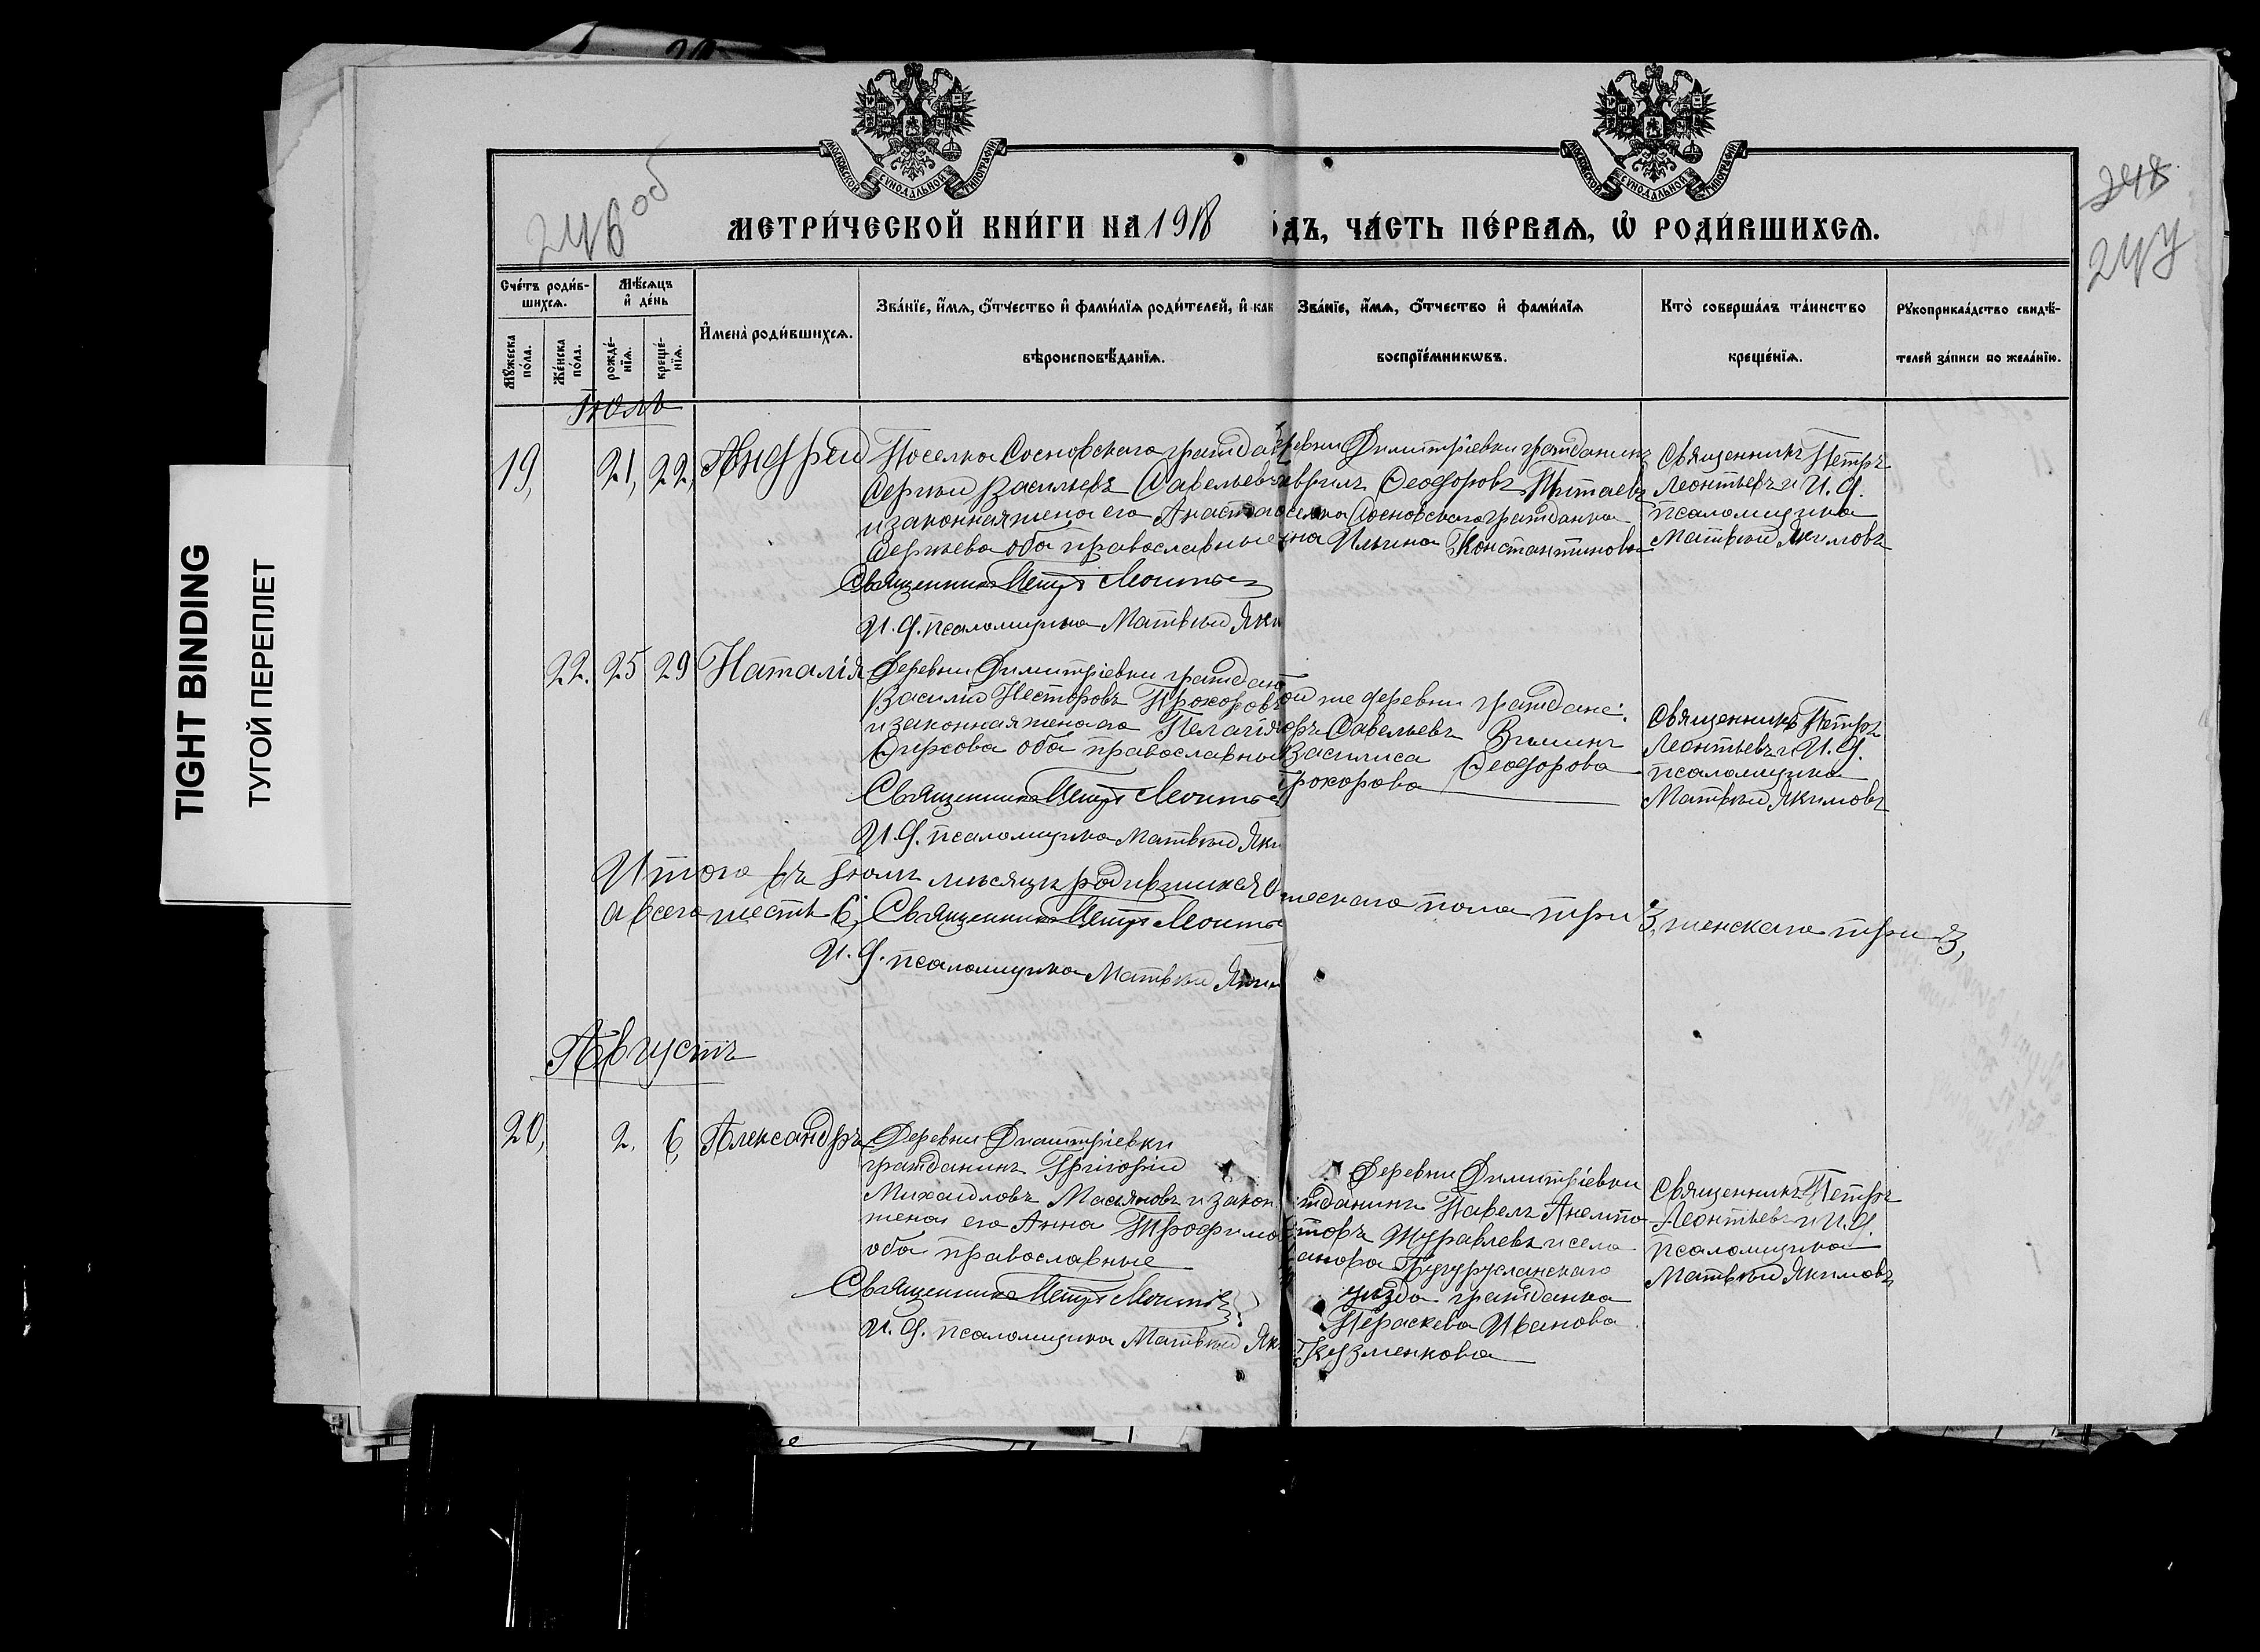 TIGHT BINDING
ТУГОЙ ПЕРЕПЛЕТ
246 об
248
247
МОСКОВСКОЙ СУНОДАЛЬНОЙ ТИПОГРАФІИ
МОСКОВСКОЙ СУНОДАЛЬНОЙ ТИПОГРАФІИ
МЕТРИ́ЧЕСКОЙ КНИ́ГИ НА 1918
ДЪ, ЧА́СТЬ ПЕ́РВАѦ, Ѡ РОДИ́ВШИХСѦ.
Сче́тъ роди́в-
шихсѧ.
Мꙋ́жеска по́ла.
Же́нска по́ла.
Мѣ́сѧцъ
и҆ де́нь
рожде́-нїѧ.
креще́-нїѧ.
И҆мена̀ роди́вшихсѧ.
Зва́нїе, и҆́мѧ, ѻ҆́тчество и҆ фами́лїѧ роди́телей, и҆ как
вѣроисповѣ́данїѧ.
Зва́нїе, и҆́мѧ, ѻ҆́тчество и҆ фами́лїѧ
воспрїе́мникѡвъ.
Кто̀ соверша́лъ та́инство
креще́нїѧ.
Рꙋкоприкла́дство свидѣ́-
телей за́писи по жела́нїю.
Іюль
19, 21, 22, Андрей
Поселка Сосновскаго граждан
Сергѣй Васильевъ Савельевъ
и законная жена его Анаста
Сергѣева оба православные
Священникъ Петръ Леонтьев
И. д. псаломщика Матвѣй Яки
еревни Димитріевки гражданинъ
авріилъ Ѳеодоровъ Титаевъ
оселка Сосновскаго гражданка
на Ильина Константинова
Священникъ Петръ
Леонтьевъ и И. д.
псаломщика
Матвѣй Якимовъ
22. 25 29 Наталія
Деревни Димитріевки граждан
Василій Несторовъ Прохоровъ
и законная жена его Пелагія
Фирсова оба православные
Священникъ Петръ Леонтьев
И. д. псаломщика Матвѣй Яки
ой же деревни граждане:
оръ Савельевъ Зиминъ
Василиса Ѳеодорова
Прохорова
Священникъ Петръ
Леонтьевъ и И. д.
псаломщика
Матвѣй Якимовъ
Итого въ Іюлѣ мѣсяцѣ родившихся жескаго пола три 3, женскаго три 3,
а всего шесть 6, Священникъ Петръ Леонтье
И. д. псаломщика Матвѣй Яким
Августъ
20, 2. 6, Александръ
Деревни Димитріевки
гражданинъ Григорій
Михаиловъ Масяновъ и закон
жена его Анна Трофимо
оба православные
Священникъ Петръ Леонтьев
И. д. псаломщика Матвѣй Як
Деревни Димитріевки
жданинъ Павелъ Анемпо
товъ Журавлевъ и села
Бугурусланскаго
уѣзда гражданка
Параскева Иванова
Кузменкова
Священникъ Петръ
Леонтьевъ и И. д.
псаломщика
Матвѣй Якимовъ